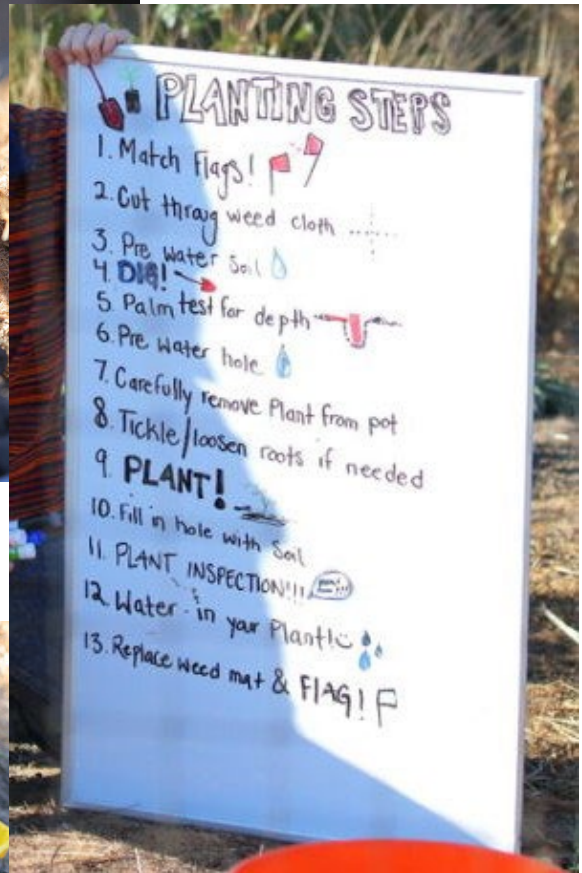 PLANTING STEPS
1. Match Flags!
2. Cut throug weed cloth
3. Pre Water Soil
4. DIG!
5. Palm test for depth
6. Pre Water hole
7. Carefully remove Plant from pot
8. Tickle/loosen roots if needed
9. PLANT!
10. Fill in hole with Soil
11. PLANT INSPECTION!!!
12. Water - in your Plant!
13. Replace weed mat & FLAG!